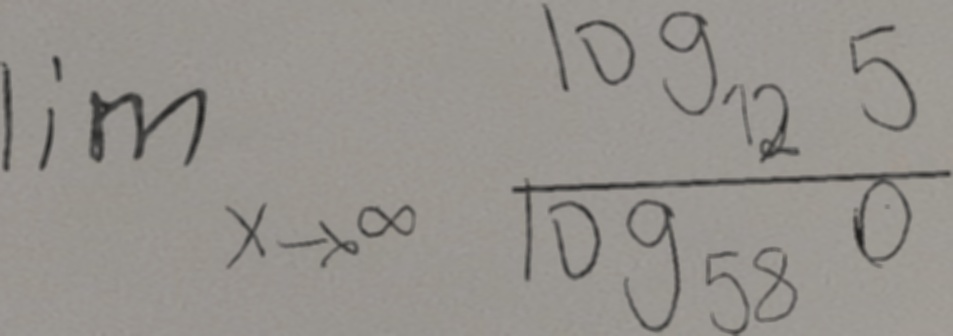 lim x→∞ log₁₂ 5 / log₅₈ 0